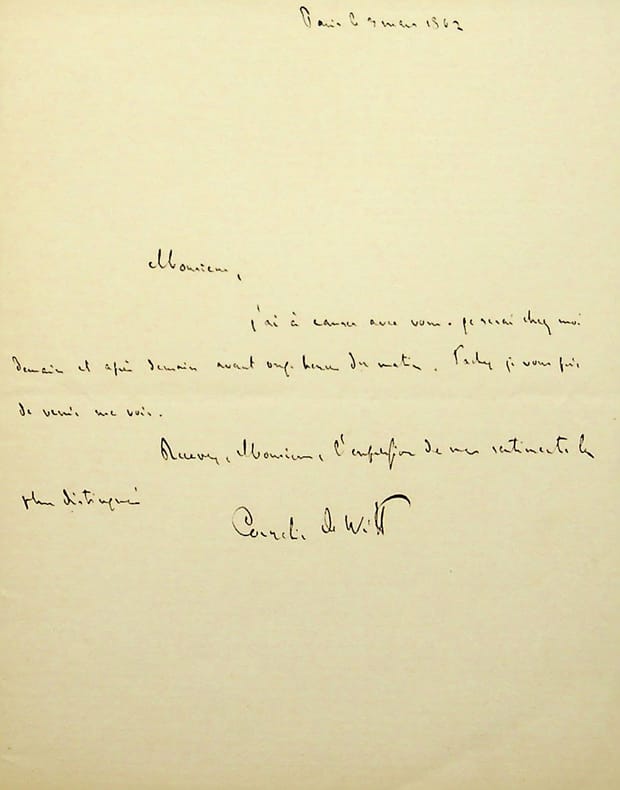 Paris le 3 mars 1862
Monsieur,
j'ai à causer avec vous. je serai chez moi
demain et après demain avant onze heures du matin. Tachez je vous prie
de venir me voir.
Recevez, Monsieur, l'expression de mes sentiments les
plus distingués
Cornelis De Witt